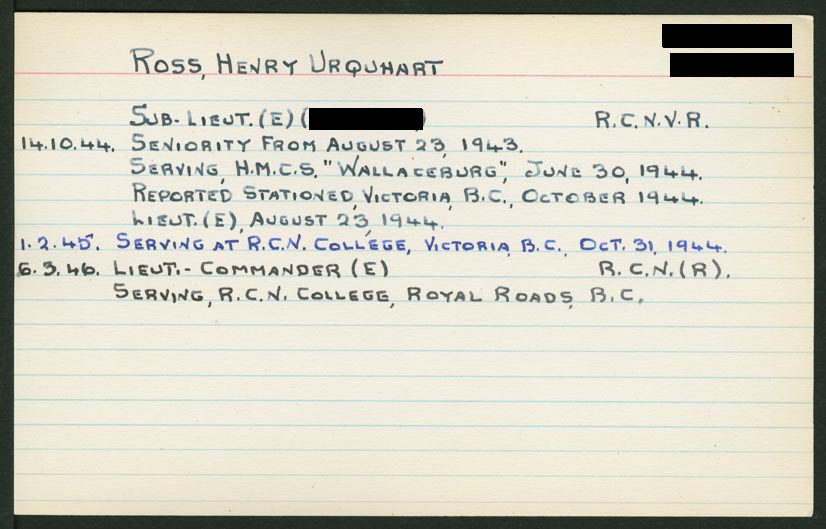 ROSS, HENRY URQUHART
SUB-LIEUT. (E) ( ) R.C.N.V.R.
14.10.44. SENIORITY FROM AUGUST 23, 1943.
SERVING, H.M.C.S. "WALLACEBURG", JUNE 30, 1944.
REPORTED STATIONED, VICTORIA, B.C., OCTOBER 1944.
LIEUT. (E), AUGUST 23, 1944.
1.2.45. SERVING AT R.C.N. COLLEGE, VICTORIA, B.C., OCT. 31, 1944.
6.3.46. LIEUT.-COMMANDER (E) R.C.N.(R).
SERVING, R.C.N. COLLEGE, ROYAL ROADS, B.C.